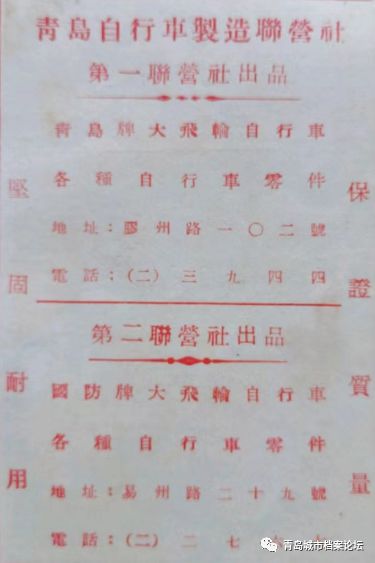 青島自行車製造聯營社
第一聯營社出品
青島牌大飛輪自行車
各種自行車零件
地址：膠州路一〇二號
電話：（二）三九四四
第二聯營社出品
國防牌大飛輪自行車
各種自行車零件
地址：易州路二十九號
電話：（二）二七
堅固耐用
保證質量
青岛城市档案论坛